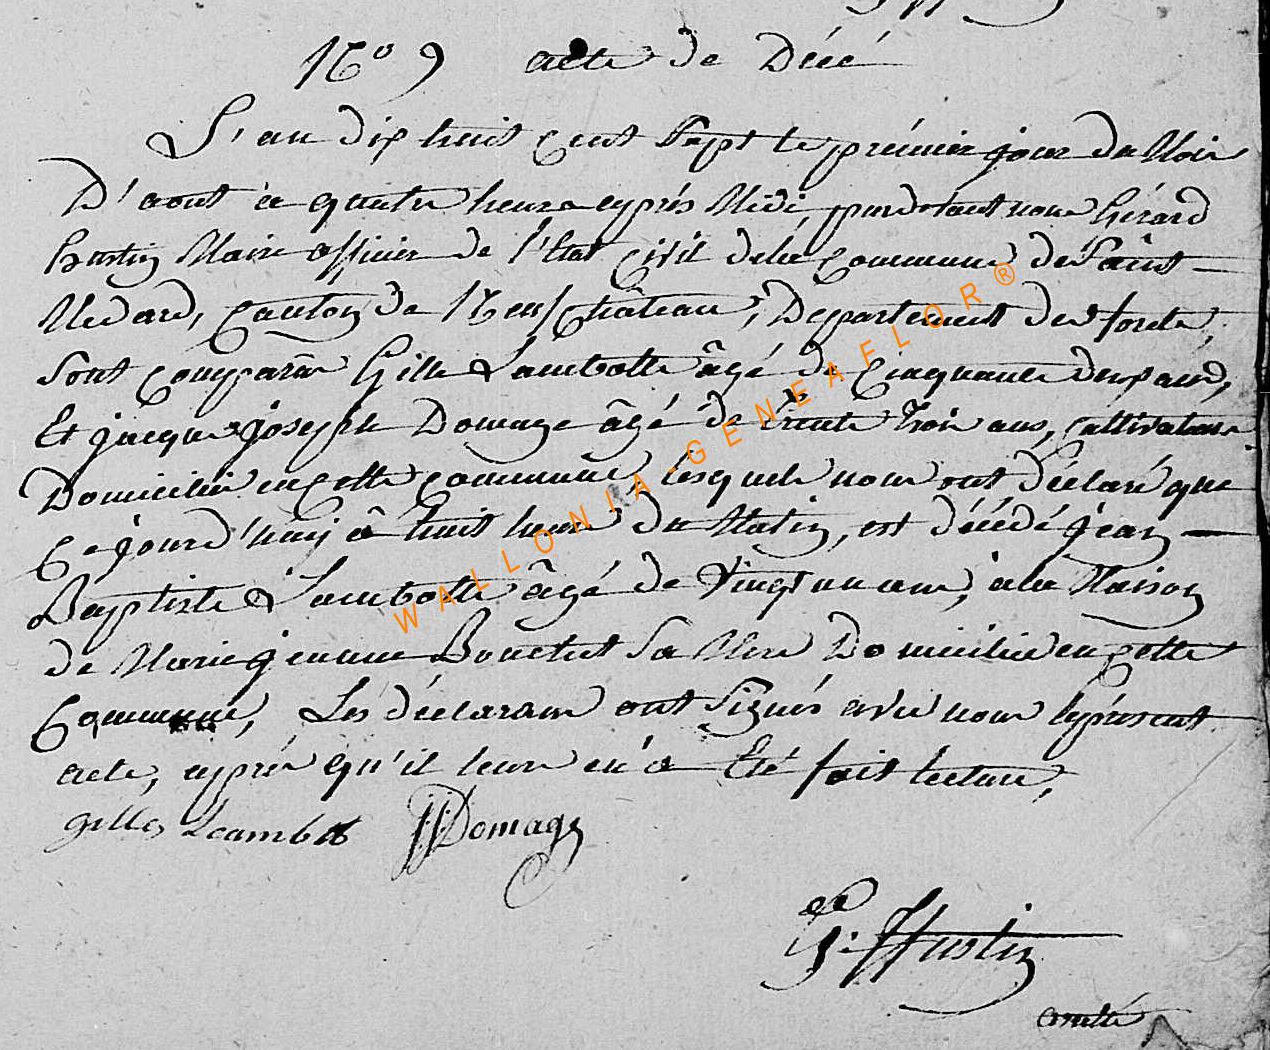 N.º 9 acte de Décé
L'an dix huit cent Sept le prémier jour du Mois
D'aout à quatre heure aprés Midi, pardevant nous Gérard
hustin Maire officier de l'Etat civil dela commune de Saint
Medard, canton de Neufchâteau, Département des forets,
Sont comparus Gille Lambotte âgé de Cinquante deux ans,
Et jacque joseph Domage âgé de trente trois ans, cultivateurs
Domicilié en cette commune, lesquels nous ont déclaré que
cejourd'huij â huit heure du Matin, est décédé jean
Baptiste Lambotte âgé de Vingt un ans, à la Maison
de Marie jeanne Bouchet Sa Mere Domicilié en cette
Commune, Les déclarans ont Signés avec nous leprésent
acte, aprés qu'il leur en a Eté fait lecture,
gilles Lambot JJDomage
G: Hustin
WALLONIA-GENEAFLOR®